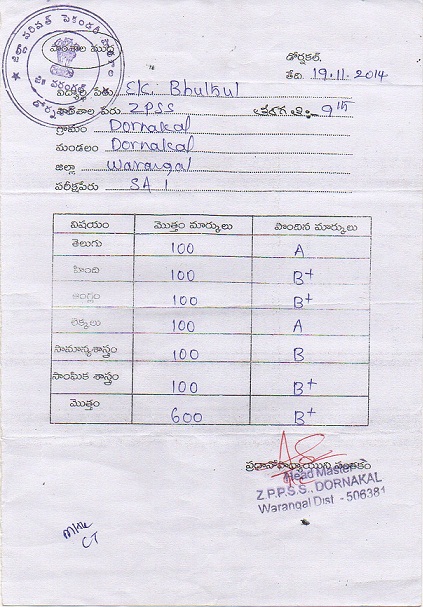 పాఠశాల ముద్ర
డోర్నకల్,
తేది. 19.11.2014
విద్యార్థి పేరు SK. Bhulbul
పాఠశాల పేరు ZPSS తరగతి: 9th
గ్రామం Dornakal
మండలం Dornakal
జిల్లా Warangal
పరీక్షపేరు SA 1
విషయం మొత్తం మార్కులు పొందిన మార్కులు
తెలుగు 100 A
హింది 100 B+
ఆంగ్లం 100 B+
లెక్కలు 100 A
సామాన్యశాస్త్రం 100 B
సాంఘిక శాస్త్రం 100 B+
మొత్తం 600 B+
ప్రధానోపాధ్యాయుని సంతకం
Head Master
Z.P.P.S.S., DORNAKAL
Warangal Dist - 506381
CT